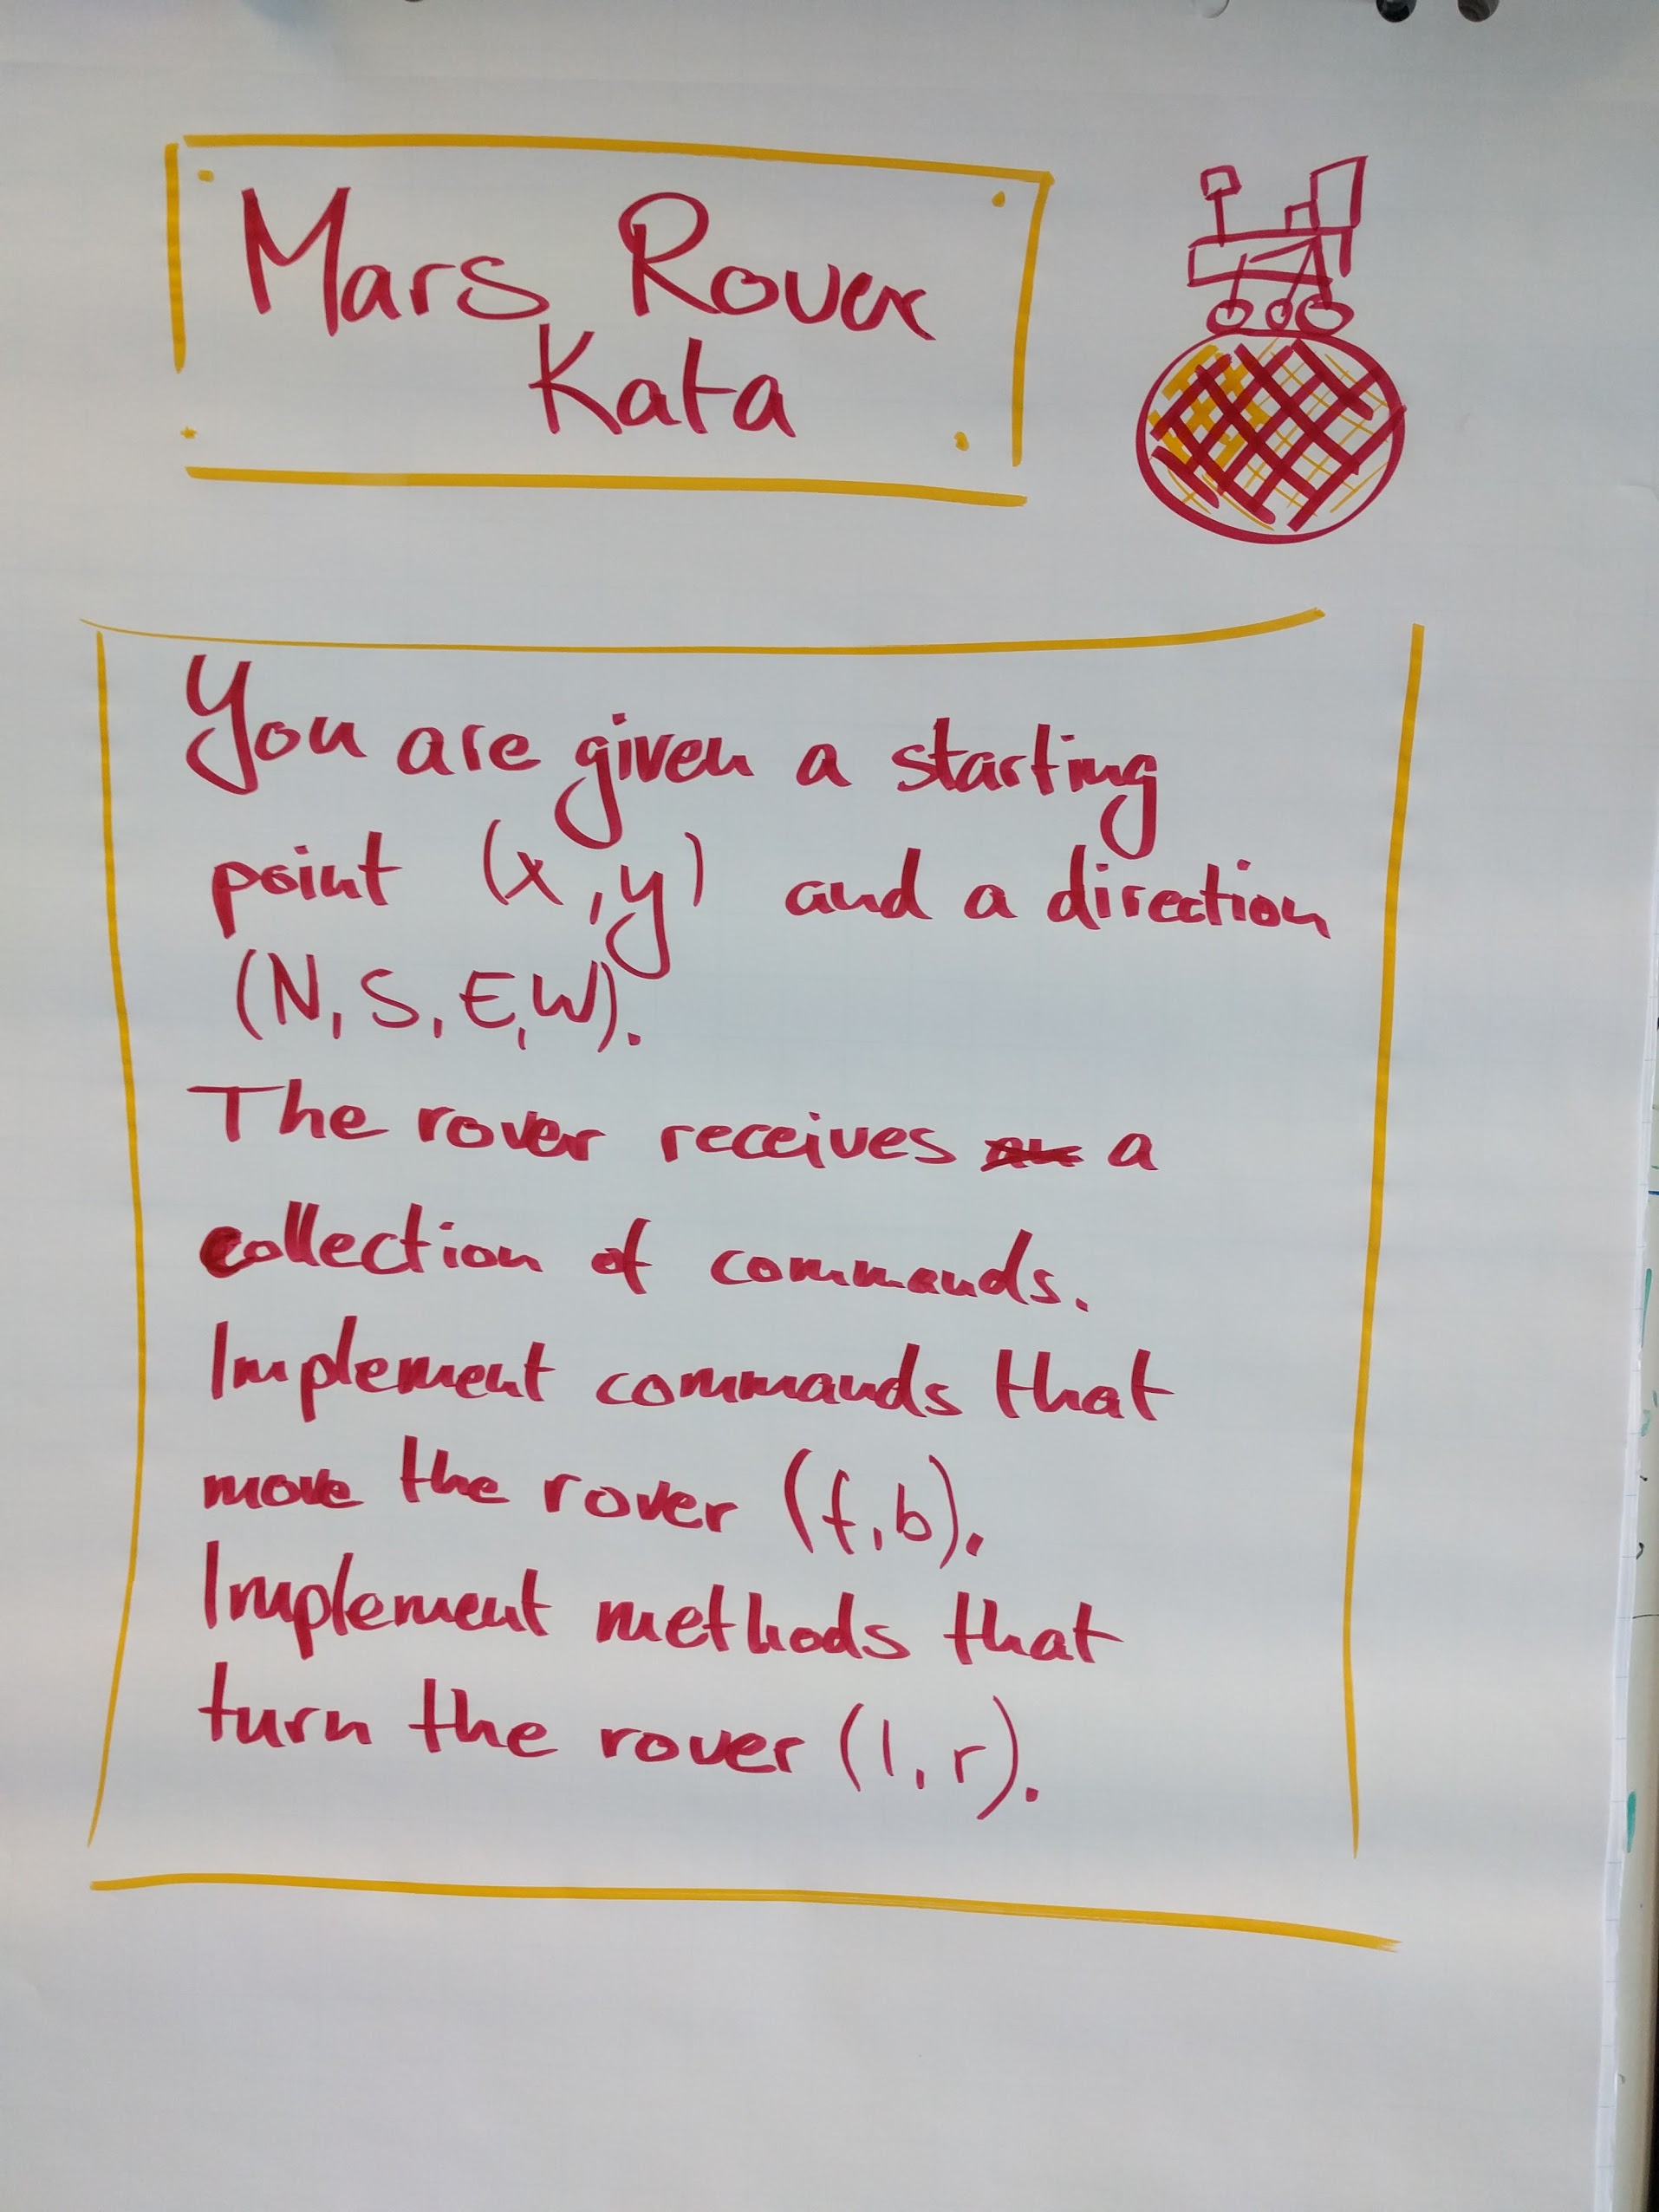 Mars Rover
Kata
You are given a starting
point (x,y) and a direction
(N, S, E, W).
The rover receives a
collection of commands.
Implement commands that
move the rover (f,b).
Implement methods that
turn the rover (l,r).